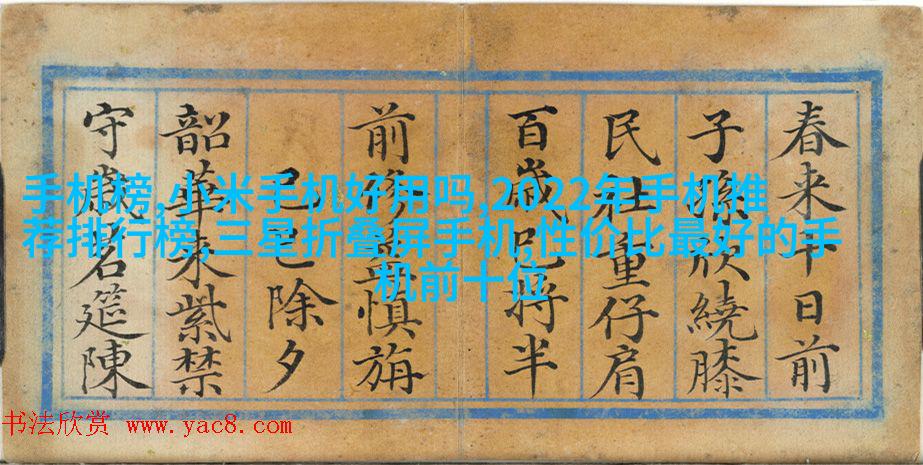 手机榜,小米手机好用吗,2022年手机推
荐排行榜,三星折叠屏手机,性价比最好的手
机前十位
春来十日前
子孫欣繞膝
民社重仔肩
百歲已將半
前後益慎旃
己巳除夕
韶華来紫禁
守歲名筵陳
书法欣赏 www.yac8.com